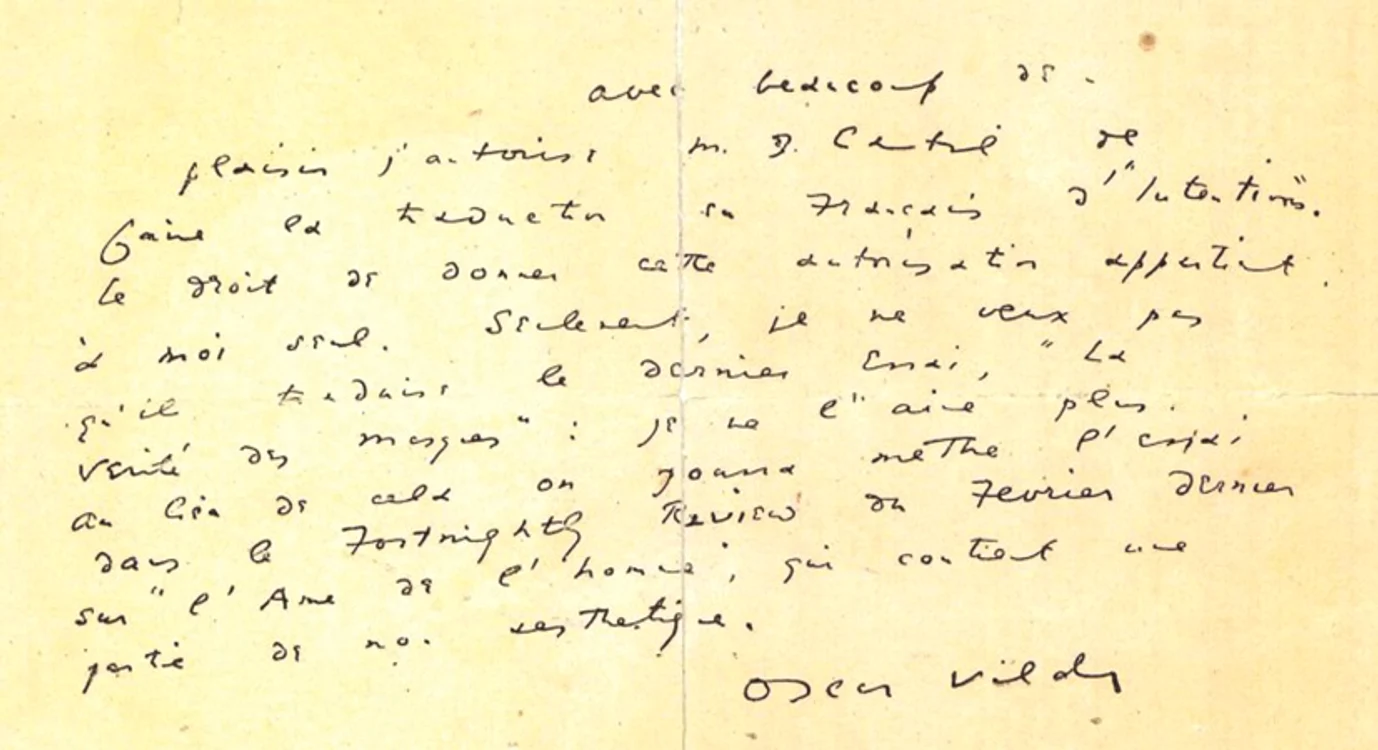 avec beaucoup de
plaisir j'autorise M. de
faire la traduction en Français d'"Intentions".
Le droit de donner cette autorisation appartient
à moi seul. Seulement, je ne veux pas
qu'il traduise le dernier essai, "La
vérité des masques" : je ne l'aime plus.
Au lieu de cela on pourra mettre l'essai
dans le Fortnightly Review du Fevrier dernier
sur "l'Ame de l'homme", qui contient une
partie de mon aesthetique.
Oscar Wilde